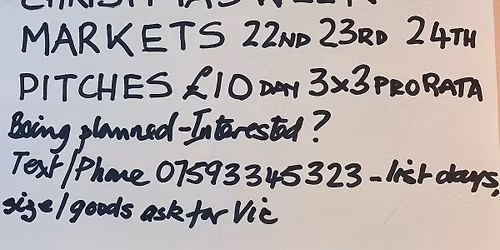 CHRISTMAS WEEK
MARKETS 22ND 23RD 24TH
PITCHES £10 DAY 3x3 PRO RATA
Being planned-Interested?
Text/Phone 07593345323 - list days,
size/goods ask for Vic